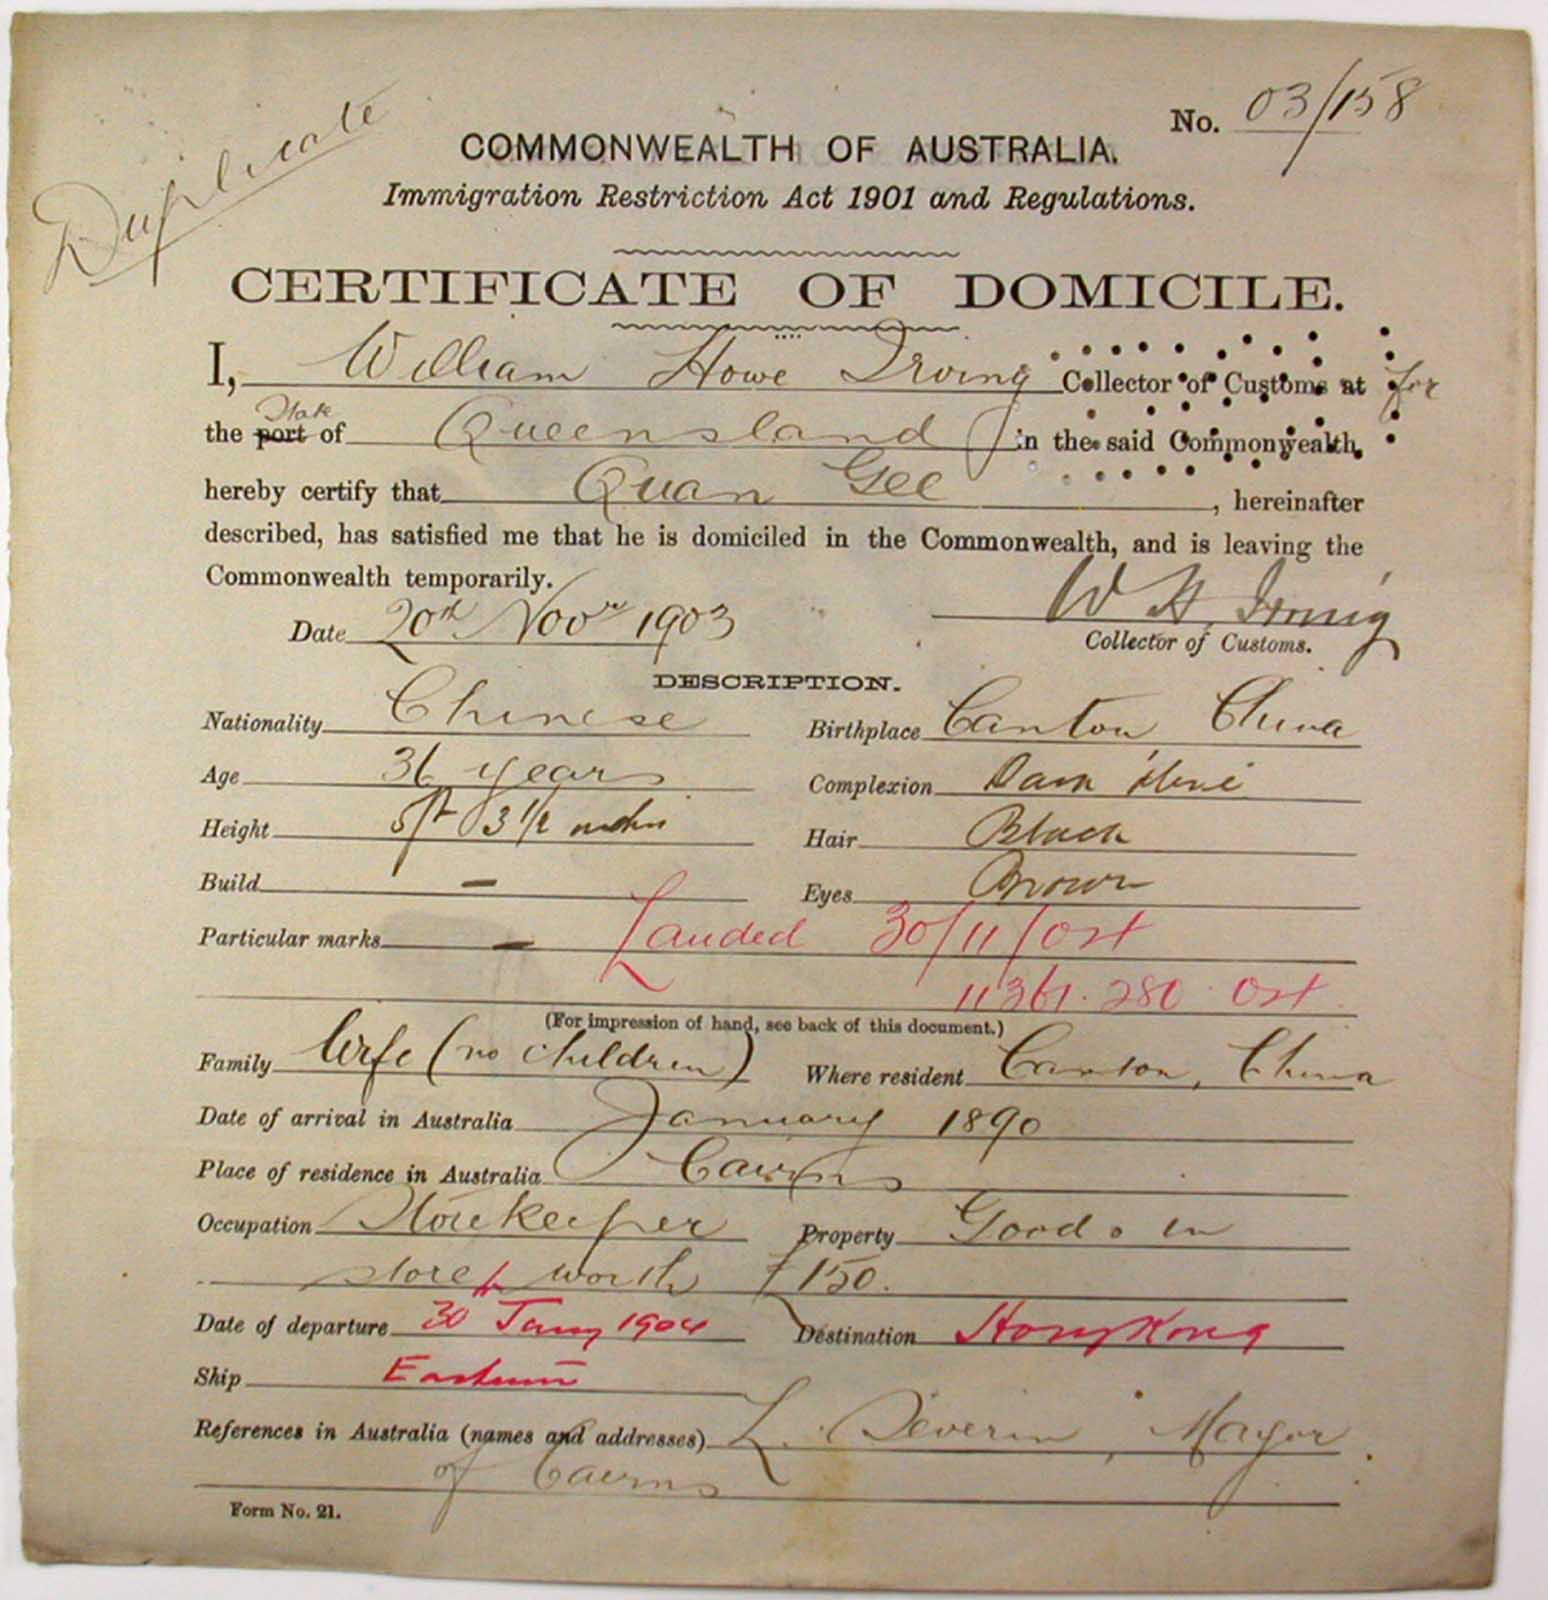 No. 03/158
Duplicate
COMMONWEALTH OF AUSTRALIA.
Immigration Restriction Act 1901 and Regulations.
CERTIFICATE OF DOMICILE.
I, William Howe Irving Collector of Customs at for
the port State of Queensland in the said Commonwealth,
hereby certify that Quan Gee, hereinafter
described, has satisfied me that he is domiciled in the Commonwealth, and is leaving the
Commonwealth temporarily.
Date 20th Novr 1903 W H Irving
Collector of Customs.
DESCRIPTION.
Nationality Chinese Birthplace Canton China
Age 36 years Complexion Dark
Height 5ft 3 1/2 inches Hair Black
Build — Eyes Brown
Particular marks — Landed 30/11/04
(For impression of hand, see back of this document.)
Family Wife (no children) Where resident Canton, China
Date of arrival in Australia January 1890
Place of residence in Australia Cairns
Occupation Storekeeper Property Goods in
store worth £150.
Date of departure 30 Jany 1904 Destination Hong Kong
Ship Eastern
References in Australia (names and addresses) L. Severin, Mayor
of Cairns
Form No. 21.